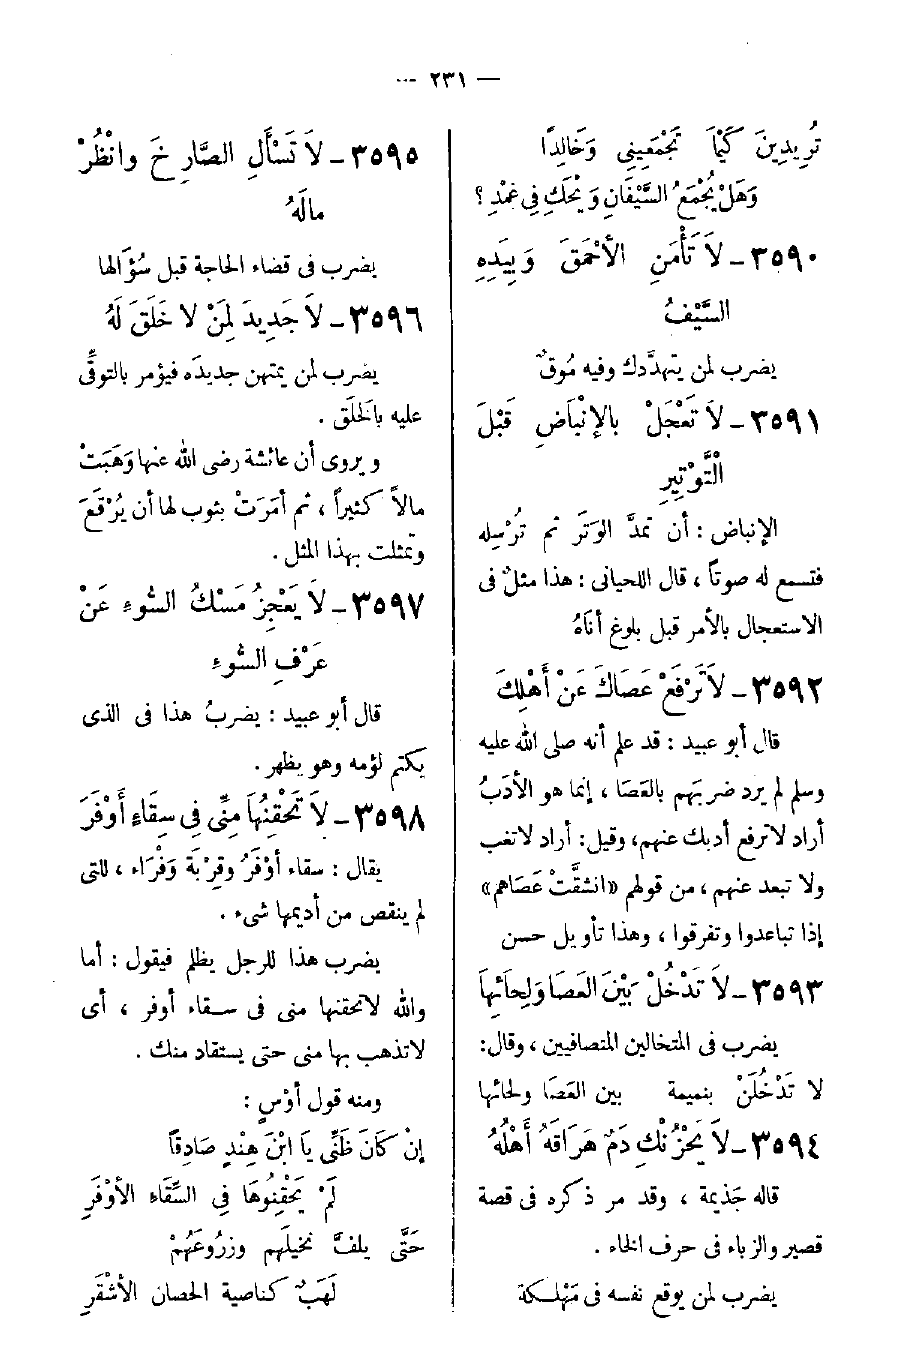 — ٢٣١ —
تُرِيدِينَ كَيْمَا تَجْمَعِينِى وَخَالِدًا
وَهَلْ يُجْمَعُ السَّيْفَانِ وَيْحَكِ فِى غِمْدِ ؟
٣٥٩٠ – لاَ تَأْمَنِ الأَحْمَقَ وَبِيَدِهِ
السَّيْفُ
يضرب لمن يتهدَّدك وفيه مُوقٌ
٣٥٩١ – لاَ تَعْجَلْ بالإنْبَاضِ قَبْلَ
التَّوْتِيرِ
الإنباض : أن تمدَّ الوَتَر ثم تُرْسِله
فتسمع له صوتاً ، قال اللحيانى : هذا مثلٌ فى
الاستعجال بالأمر قبل بلوغ أنَاهُ
٣٥٩٢ – لاَ تَرْفَعْ عَصَاكَ عَنْ أَهْلِكَ
قال أبو عبيد : قد علم أنه صلى الله عليه
وسلم لم يرد ضربَهم بالعَصَا ، إنما هو الأدَبُ
أراد لا ترفع أدبك عنهم، وقيل: أراد لا تغب
ولا تبعد عنهم ، من قولهم «انشقَّتْ عَصَاهم»
إذا تباعدوا وتفرقوا ، وهذا تأويل حسن
٣٥٩٣ – لاَ تَدْخُلْ بَيْنَ العَصَا وَلِحَائِهَا
يضرب فى المتخالين المتصافيين ، وقال:
لا تَدْخُلَنْ بنميمة بين العَصَا ولحائها
٣٥٩٤ – لاَ يَحْزُنْكِ دَمٌ هَرَاقَهُ أَهْلُهُ
قاله جَذيمة ، وقد مر ذكره فى قصة
قصير والزباء فى حرف الخاء .
يضرب لمن يوقع نفسه فى مَهْلكة
٣٥٩٥ – لاَ تَسْأَلِ الصَّارِخَ وانْظُرْ
مالَهُ
يضرب فى قضاء الحاجة قبل سُؤالها
٣٥٩٦ – لاَ جَدِيدَ لِمَنْ لا خَلَقَ لَهُ
يضرب لمن يمتهن جديدَه فيؤمر بالتوقِّى
عليه بالَخلَق .
ويروى أن عائشة رضى الله عنها وَهَبَتْ
مالاً كثيراً ، ثم أمَرَتْ بثوب لها أن يُرْقَعَ
وتمثلت بهذا المثل .
٣٥٩٧ – لاَ يَعْجِزُ مَسْكُ السُّوءِ عَنْ
عَرْفِ السُّوءِ
قال أبو عبيد : يضربُ هذا فى الذى
يكتم لؤمه وهو يظهر .
٣٥٩٨ – لاَ تَحْقِنُهَا مِنِّى فِى سِقَاءِ أَوْفَرَ
يقال : سقاء أوْفَرُ وقِرْبَة وَفْرَاء ، للتى
لم ينقص من أديمها شىء .
يضرب هذا للرجل يظلم فيقول : أما
والله لاتحقنها منى فى سقاء أوفر ، أى
لاتذهب بها منى حتى يستقاد منك .
ومنه قول أوْسٍ :
إنْ كَانَ ظَنِّى يَا ابْنَ هِنْدٍ صَادِقاً
لَمْ يَحْقِنُوهَا فِى السِّقَاءِ الأوْفَرِ
حَتَّى يلفَّ نخيلَهم وزرُوعَهُمْ
لَهَبٌ كناصية الحصان الأشْقَرِ